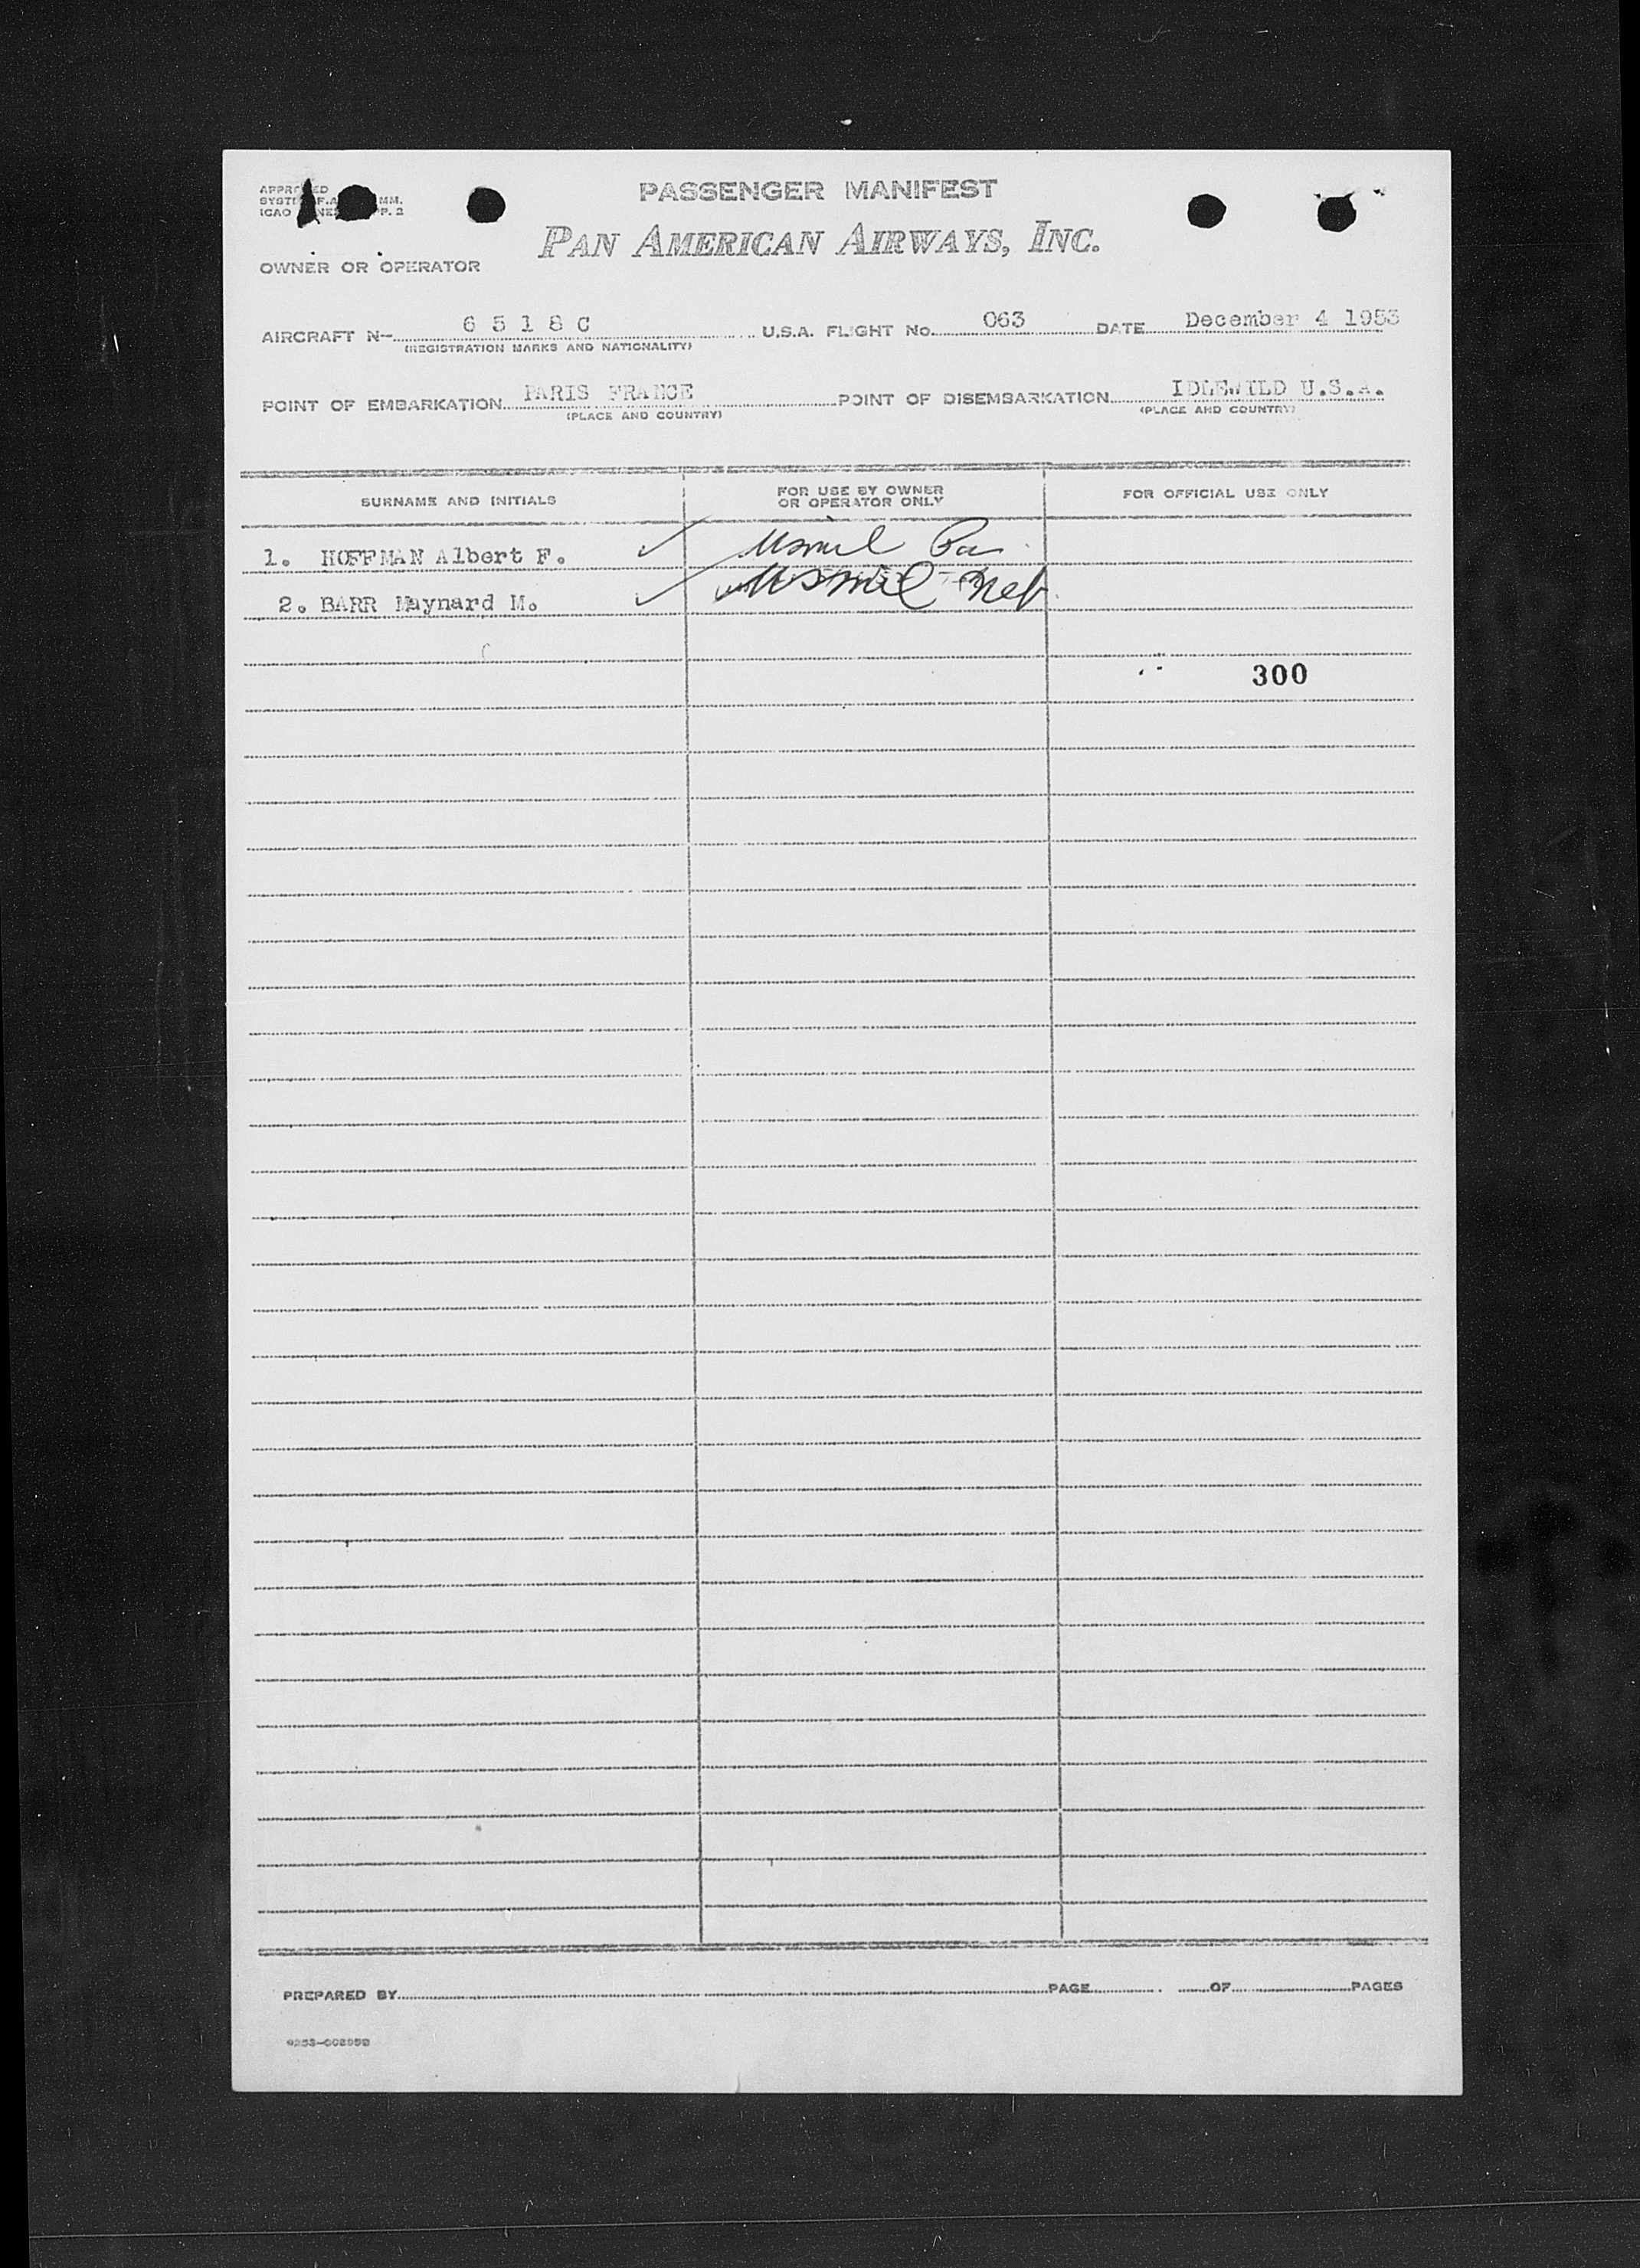 PASSENGER MANIFEST
PAN AMERICAN AIRWAYS, INC.
OWNER OR OPERATOR
AIRCRAFT N- 6 5 1 8 C U.S.A. FLIGHT No. 063 DATE December 4 1953
(REGISTRATION MARKS AND NATIONALITY)
POINT OF EMBARKATION PARIS FRANCE POINT OF DISEMBARKATION IDLEWILD U.S.A.
(PLACE AND COUNTRY) (PLACE AND COUNTRY)
SURNAME AND INITIALS FOR USE BY OWNER OR OPERATOR ONLY FOR OFFICIAL USE ONLY
1. HOFFMAN Albert F. Usmil Pa
2. BARR Maynard M. Usmil Neb
300
PREPARED BY PAGE OF PAGES